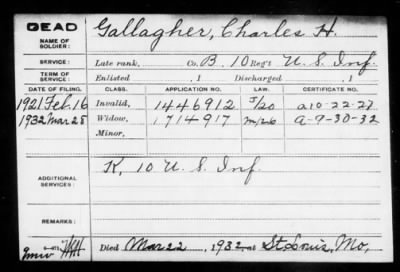 DEAD
NAME OF SOLDIER: Gallagher, Charles H.
SERVICE: Late rank, Co. B, 10 Reg't U. S. Inf.
TERM OF SERVICE: Enlisted , 1 Discharged , 1
DATE OF FILING. CLASS. APPLICATION NO. LAW. CERTIFICATE NO.
1921 Feb. 16 Invalid, 1446912
1932 Mar 28 Widow, 1714917 A-9-30-32
Minor,
ADDITIONAL SERVICES: K, 10 U. S. Inf.
REMARKS:
Died Mar 22, 1932 at St. Louis, Mo,